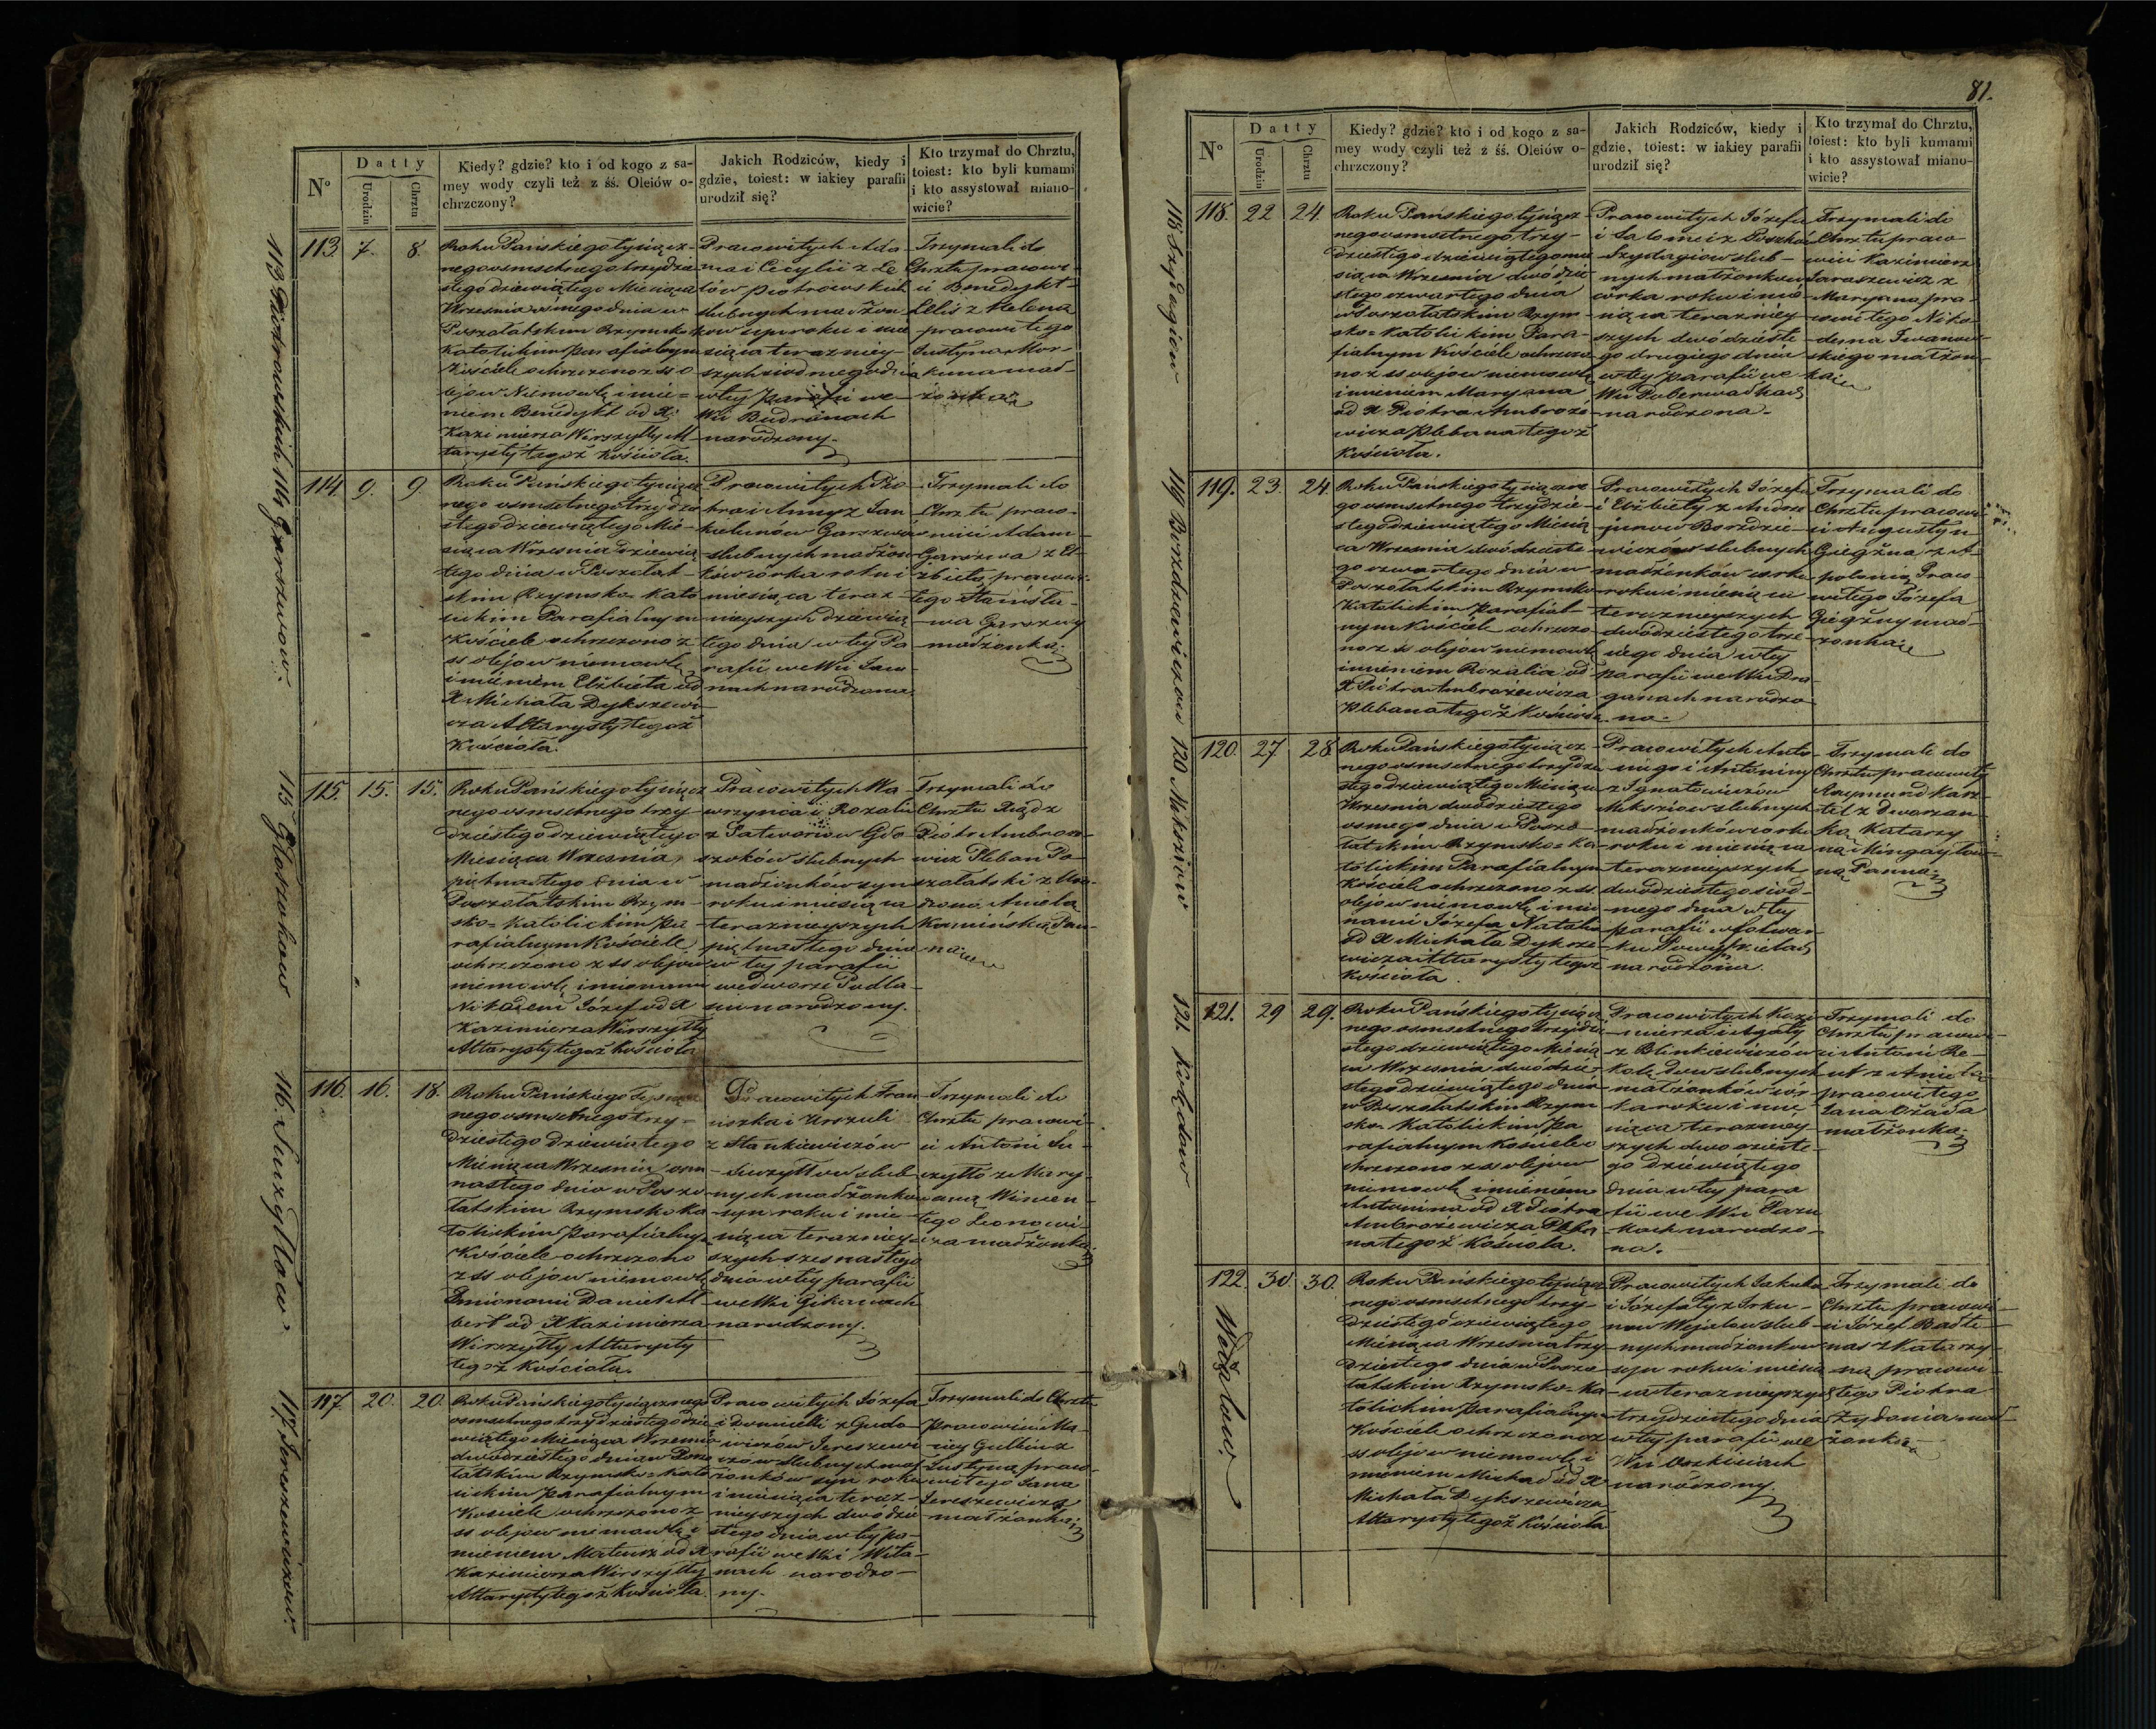 N°
Datty
Urodzin
Chrztu
Kiedy? gdzie? kto i od kogo z sa-
mey wody czyli też z śś. Oleiów o-
chrzczony?
Jakich Rodziców, kiedy i
gdzie, toiest: w iakiey parafii
urodził się?
Kto trzymał do Chrztu,
toiest: kto byli kumami
i kto assystował miano-
wicie?
113. 7. 8.
Roku Pańskiego tysiącz-
nego osmsetnego trzydzie
stego dziewiątego Miesiąca
Września osmego dnia w
Poszołatskim Rzymsko
Katolickim Parafialnym
Kościele ochrzczono z ss o
lejow Niemowlę imie=
niem Benedykt od X.
Kazimierza Wirszyłły Al
tarysty tegoż Kościoła.
Pracowitych Ada
ma i Cecylii z Le
lów Piotrowskich
slubnych małżon
kow syn roku i mie
siąca teraznıey-
szych siodmego dnia
w tey parafii we
Wsi Budranach
narodzony.
Trzymali do
Chrztu pracowi-
ci Benedykt
Lelis z Heleną
pracowitego
Justyna Mor-
kuna mał-
żonką
114. 9. 9.
Roku Pańskiego tysiącz
nego osmsetnego trzydzie
stego dziewiątego Mie-
siąca Września dziewią
tego dnia w Poszołat-
skim Rzymsko Kato
lickim Parafialnym
Kościele ochrzczono z
ss olejow niemowlę
imieniem Elżbieta od
X Michała Dykszewi-
cza Altarysty tegoż
Kościoła.
Pracowitych Pio
tra i Anny z Jan
kielunów Garszwów
slubnych małżon
ków córka roku i
miesiąca teraz-
nieyszych dziewią
tego dnia w tey Pa
rafii we Wsi
narodzona
Trzymali do
Chrztu praco-
wici Adam
Garszwa z El-
żbietą pracowi-
tego Stanisła-
wa Garszwy
małżonką.
115. 15. 15.
Roku Pańskiego tysiącz
nego osmsetnego trzy-
dziestego dziewiątego
Miesiąca Września
piętnastego dnia w
Poszołatskim Rzym-
sko= Katolickim Pa-
rafialnym Kościele
ochrzczono z ss olejow
niemowlę imionami
Nikodem Józef od X
Kazimierza Wirszyłły
Altarysty tegoż Kościoła
Pracowitych Wa
wrzynca i Rozalii
z
slubnych
małżonków syn
roku i miesiąca
teraznieyszych
piętnastego dnia
w tey parafii
we dworze Podla-
narodzony.
Trzymali do
Chrztu Xiądz
Piotr Ambroze-
wicz Pleban Po-
szołatski z Uro-
dzoną Anielą
Kamińską Pan-
ną
116. 16. 18.
Roku Pańskiego Tysiącz
nego osmsetnego trzy-
dziestego dziewiątego
Miesiąca Września osm
nastego dnia w Poszo
łatskim Rzymsko Ka
tolickim Parafialnym
Kościele ochrzczono
z ss olejow niemowlę
Imionami Daniel Al
bert od X Kazimierza
Wirszyłły Altarysty
tegoż Kościoła.
Pracowitych Fran
ciszka i Urszuli
z Stankiewiczów
Suszyłłow slub
nych małżonkow
syn roku i mie-
siąca teraznıey
szych szesnastego
dnia w tey parafii
we Wsi
narodzony.
Trzymali do
Chrztu pracowi-
ci Antoni Su-
szyłło z Mary-
anną Wincen-
tego Leonowi-
cza małżonką
117. 20. 20.
Roku Pańskiego tysiącznego
osmsetnego trzydziestego dzie
wiątego Miesiąca Września
dwódziestego dnia w Poszo
łatskim Rzymsko-Kato
lickim Parafialnym
Kościele ochrzczono z
ss olejow niemowlę i
mieniem Mateusz od X
Kazimierza Wirszyłły
Altarysty tegoż Kościoła.
Pracowitych Józefa
i Domicelli z Gudo-
wiczów Jereszewi
czów slubnych mał
żonków syn roku
i miesiąca teraz-
nieyszych dwódzie
stego dnia w tey pa-
rafii we Wsi Wita-
nach narodzo-
ny.
Trzymali do Chrztu
Pracowici Ma-
ciey Gulbin z
Justyną praco-
witego Jana
Jereszewicza
małżonką
113 Piotrowskich
114 Garszwow.
115 Głodzokow
116. Suszyłłow
117. Jereszewiczow.
81.
N°
Datty
Urodzin
Chrztu
Kiedy? gdzie? kto i od kogo z sa-
mey wody czyli też z śś. Oleiów o-
chrzczony?
Jakich Rodziców, kiedy i
gdzie, toiest: w iakiey parafii
urodził się?
Kto trzymał do Chrztu,
toiest: kto byli kumami
i kto assystował miano-
wicie?
118. 22 24.
Roku Pańskiego tysiącz
nego osmsetnego trzy-
dziestego dziewiątego mie
siąca Września dwódzie
stego czwartego dnia
w Poszołatskim Rzym
sko= Katolickim Para-
fialnym Kościele ochrzczo
no z ss olejow niemowlę
imieniem Maryana
od X Piotra Ambroże
wicza Plebana tegoż
Kościoła.
Pracowitych Józefa
i Salomei z
Szyłagiow slub-
nych małżonkow
córka roku i mie
siąca teraznıey
szych dwódzieste
go drugiego dnia
w tey parafii we
Wsi Poberwadkach
narodzona.
Trzymali do
Chrztu praco
wici Kazimierz
Taraszewicz z
Maryaną pra-
cowitego Niko-
dema Iwanow-
skiego małżon-
ką
119. 23. 24.
Roku Pańskiego tysiączne
go osmsetnego trzydzie-
stego dziewiątego Miesią
ca Września dwódzieste
go czwartego dnia w
Poszołatskim Rzymsko
Katolickim Parafial-
nym Kościele ochrzczo
no z ss olejow niemowlę
imieniem Rozalia od
X Piotra Ambrożewicza
Plebana tegoż Kościoła
Pracowitych Józefa
i Elżbiety z Andrze
junow Borzdzie-
wiczów slubnych
małżonków corka
roku i miesiąca
teraznieyszych
dwódziestego trze
ciego dnia w tey
parafii we Wsi Dra
ganach narodzo
na.
Trzymali do
Chrztu pracowi-
ci Augustyn
Giegżna z A-
polonią Praco-
witego Józefa
Giegżny mał-
żonką
120. 27 28
Roku Pańskiego tysiącz
nego osmsetnego trzydzie
stego dziewiątego Miesiąca
Września dwódziestego
osmego dnia w Poszo-
łatskim Rzymsko= Ka-
tolickim Parafialnym
Kościele ochrzczono z ss
olejow niemowlę imio
nami Józefa Natalia
od X Michała Dyksze-
wicza Altarysty tegoż
Kościoła.
Pracowitych Anto
niego i Antoniny
z Ignatowiczow
Mikszów slubnych
małżonków corka
roku i miesiąca
teraznieyszych
dwódziestego siód-
mego dnia w tey
parafii w folwar
ku
narodzona.
Trzymali do
Chrztu pracowity
Raymund
z Dworzan-
ką Katarzy
ną Mingayłow-
ną Panną
121. 29 29.
Roku Pańskiego tysiącz
nego osmsetnego trzydzie
stego dziewiątego Miesią
ca Września dwódzie-
stego dziewiątego dnia
w Poszołatskim Rzym
sko- Katolickim Pa
rafialnym Kościele o
chrzczono z ss olejow
niemowlę imieniem
Antonina od X Piotra
Ambrożewicza Pleba
na tegoż Kościoła.
Pracowitych Kazi
mierza i Agaty
z Blinkiewiczów
Kolędow slubnych
małżonków cór
ka roku i mie
siąca teraznıey
szych dwódzieste
go dziewiątego
dnia w tey para
fii we Wsi
kach narodzo-
na.
Trzymali do
Chrztu pracowi-
ci Antoni Re-
kut z Anielą
pracowitego
Jana Ożada
małżonką
122 30 30.
Roku Pańskiego tysiącz
nego osmsetnego trzy-
dziestego dziewiątego
Miesiąca Września trzy
dziestego dnia w Poszo
łatskim Rzymsko= Ka-
tolickim Parafialnym
Kościele ochrzczono z
ss olejow niemowlę i
mieniem Michał od X
Michała Dykszewicza
Altarysty tegoż Kościoła
Pracowitych Jakuba
i Józefaty z
slub-
nych małżonkow
syn roku i miesią
ca teraznieyszych
trzydziestego dnia
w tey parafii we
Wsi
narodzony.
Trzymali do
Chrztu pracowi-
ci Józef
z Katarzy-
ną pracowi-
tego Piotra
mał-
żonką
118 Szyłagiow
119 Borzdziewiczow
120 Mikszow
121 Kolędow